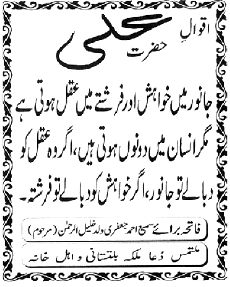 اقوالِ
حضرت علی
جانور میں خواہش اور فرشتے میں عقل ہوتی ہے
مگر انسان میں دونوں ہوتی ہیں، اگر وہ عقل کو
دبا لے تو جانور، اگر خواہش کو دبا لے تو فرشتہ۔
فاتحہ برائے سمیع احمد جعفری ولد خلیل الرحمٰن (مرحوم)
ملتمس دُعا ملکہ بلتستانی و اہل خانہ